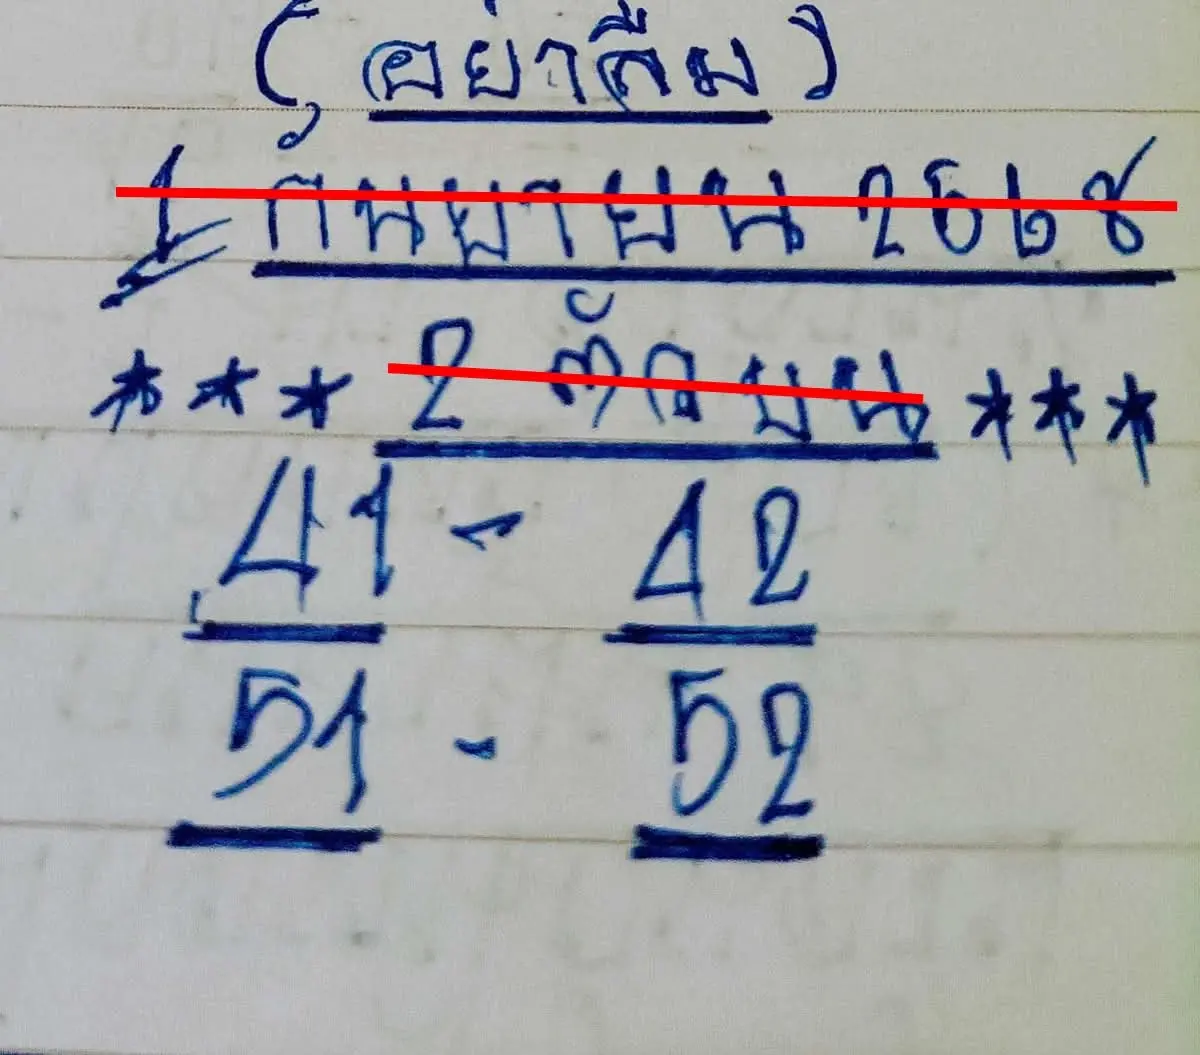 (อย่าลืม)
1 กันยายน 2568
*** 2 ตัวบน ***
41 - 42
51 - 52